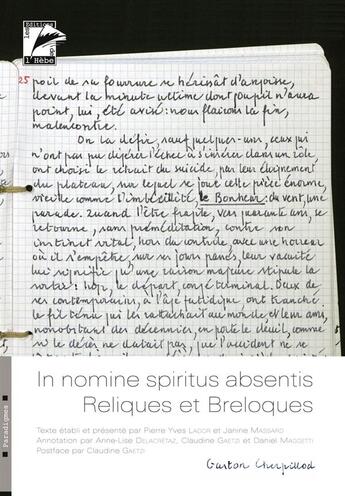 les Editions
de
l'Hèbe
25 poil de sa fourrure se hérisât d'angoisse,
devant la minute ultime dont pour il n'aura
point, lui, été avisé : nous flairons la fin,
malencontre.
On la défie, sauf quelques-uns, ceux qui
n'ont pas pu digérer l'échec à s'insérer dans un rôle,
ont choisi le retrait du suicide, par leur éloignement
du plateau, sur lequel se joue cette pièce énorme,
vieille comme l'imbécillité, le Bonheur : du vent, une
parade. Quand l'être fragile, vers quarante ans, se
retourne, sans préméditation, contre son
instinct vital, hors du contrôle, avec une horreur
où il s'empêtre, sur ses jours passés, leur vacuité
lui signifie qu'une raison majeure stipule la
sortie : hop, le départ, congé terminal. Deux de
ses contemporains, à l'âge fatidique, ont tranché
le fil ténu qui les rattachait au monde et leur ami,
nonobstant des décennies, en porte le deuil, comme
si le décès ne datait pas, que l'accident ne se
In nomine spiritus absentis
Reliques et Breloques
Texte établi et présenté par Pierre Yves LADOR et Janine MASSARD
Annotation par Anne-Lise DELACRÉTAZ, Claudine GAETZI et Daniel MAGGETTI
Postface par Claudine GAETZI
Gaston Cherpillod
Paradigmes